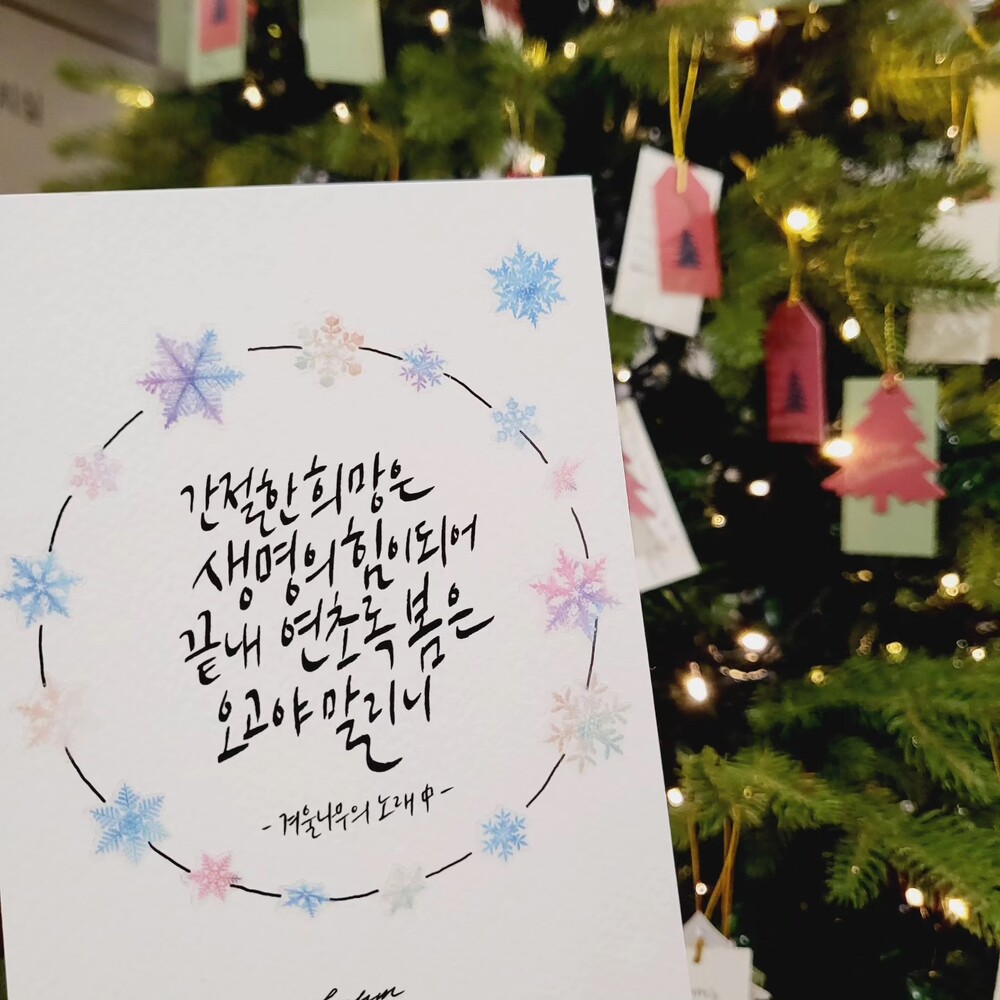 간절한 희망은
생명의 힘이 되어
끝내 연초록 봄은
오고야 말리니
- 겨울나무의 노래 中 -